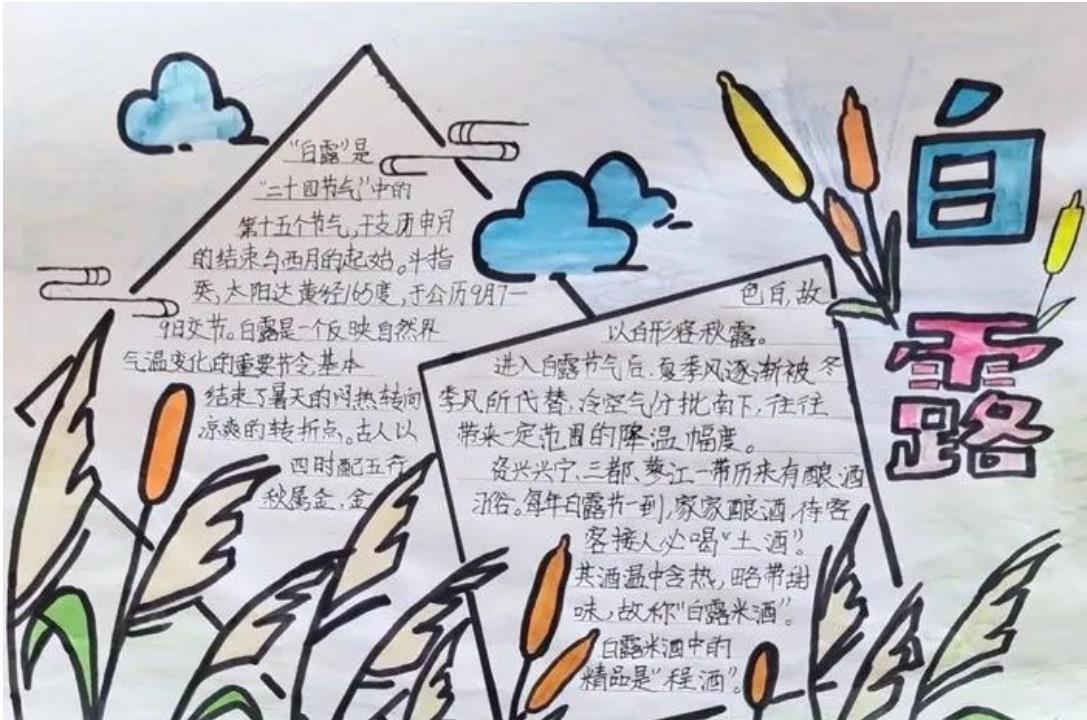 白露
"白露"是
"二十四节气"中的
第十五个节气,干支历申月
的结束与酉月的起始。斗指
癸,太阳达黄经165度,于公历9月7—
9日交节。白露是一个反映自然界
气温变化的重要节令,基本
结束了暑天的闷热转向
凉爽的转折点。古人以
四时配五行
秋属金,金
色白,故
以白形容秋露。
进入白露节气后,夏季风逐渐被冬
季风所代替,冷空气分批南下,往往
带来一定范围的降温幅度。
资兴兴宁、三都、蓼江一带历来有酿酒
习俗。每年白露节一到,家家酿酒,待客
客接人必喝"土酒"。
其酒温中含热,略带甜
味,故称"白露米酒"。
白露米酒中的
精品是"程酒"。